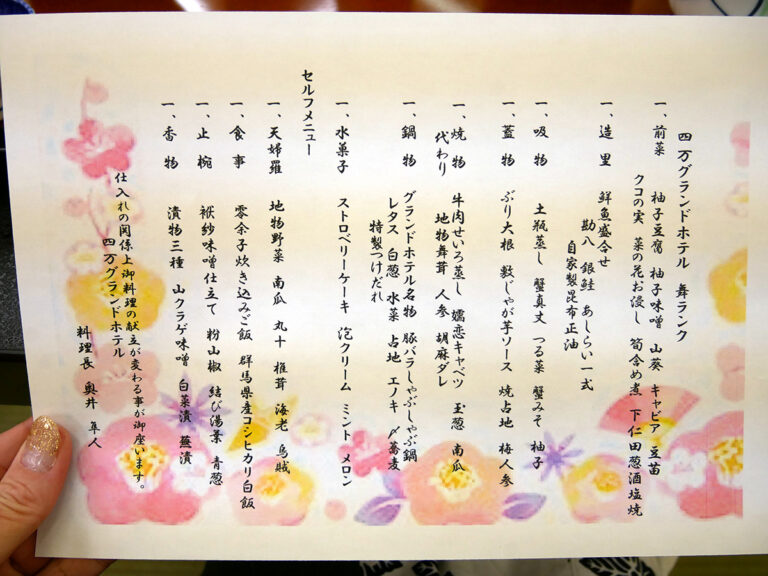 四万グランドホテル 舞ランク
一、前菜 柚子豆腐 柚子味噌 山葵 キャビア 豆苗
クコの実 菜の花お浸し 筍含め煮 下仁田葱酒塩焼
一、造里 鮮魚盛合せ
勘八 銀鮭 あしらい一式
自家製昆布正油
一、吸物 土瓶蒸し 蟹真丈 つる菜 蟹みそ 柚子
一、蓋物 ぶり大根 数じゃが芋ソース 焼占地 梅人参
一、焼物 牛肉せいろ蒸し 嬬恋キャベツ 玉葱 南瓜
代わり 地物舞茸 人参 胡麻ダレ
一、鍋物 グランドホテル名物 豚バラしゃぶしゃぶ鍋
レタス 白葱 水菜 占地 エノキ 〆蕎麦
特製つけだれ
一、水菓子 ストロベリーケーキ 泡クリーム ミント メロン
セルフメニュー
一、天婦羅 地物野菜 南瓜 丸十 椎茸 海老 烏賊
一、食事 零余子炊き込みご飯 群馬県産コシヒカリ白飯
一、止椀 袱紗味噌仕立て 粉山椒 結び湯葉 青葱
一、香物 漬物三種 山クラゲ味噌 白菜漬 蕪漬
仕入れの関係上御料理の献立が変わる事が御座います。
四万グランドホテル
料理長 奥井 隼人